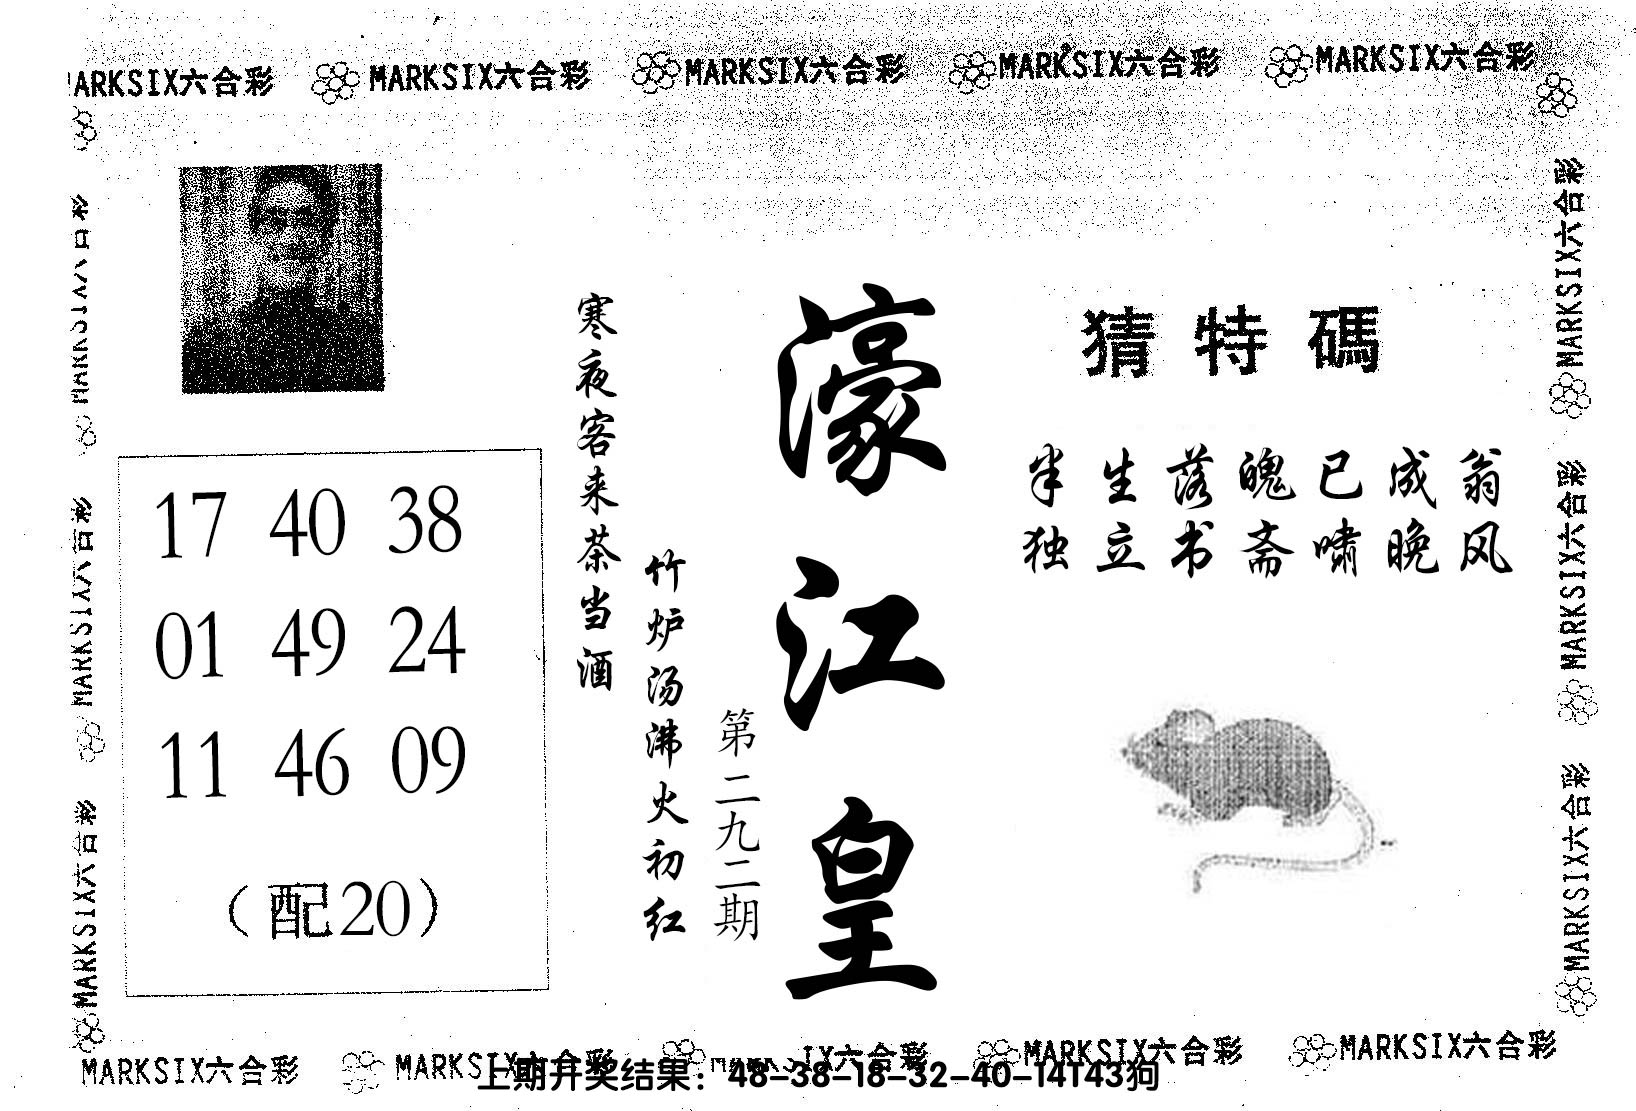 MARKSIX六合彩 MARKSIX六合彩 MARKSIX六合彩 MARKSIX六合彩 MARKSIX六合彩
猜特碼
半生落魄已成翁
独立书斋啸晚风
濠江皇
第二九二期
寒夜客来茶当酒
竹炉汤沸火初红
17 40 38
01 49 24
11 46 09
(配20)
MARKSIX六合彩
MARKSIX六合彩
MARKSIX六合彩
MARKSIX六合彩
MARKSIX六合彩
MARKSIX六合彩
MARKSIX六合彩 MARKSIX六合彩 MARKSIX六合彩 MARKSIX六合彩 MARKSIX六合彩
上期开奖结果：48-38-18-32-40-14T43狗